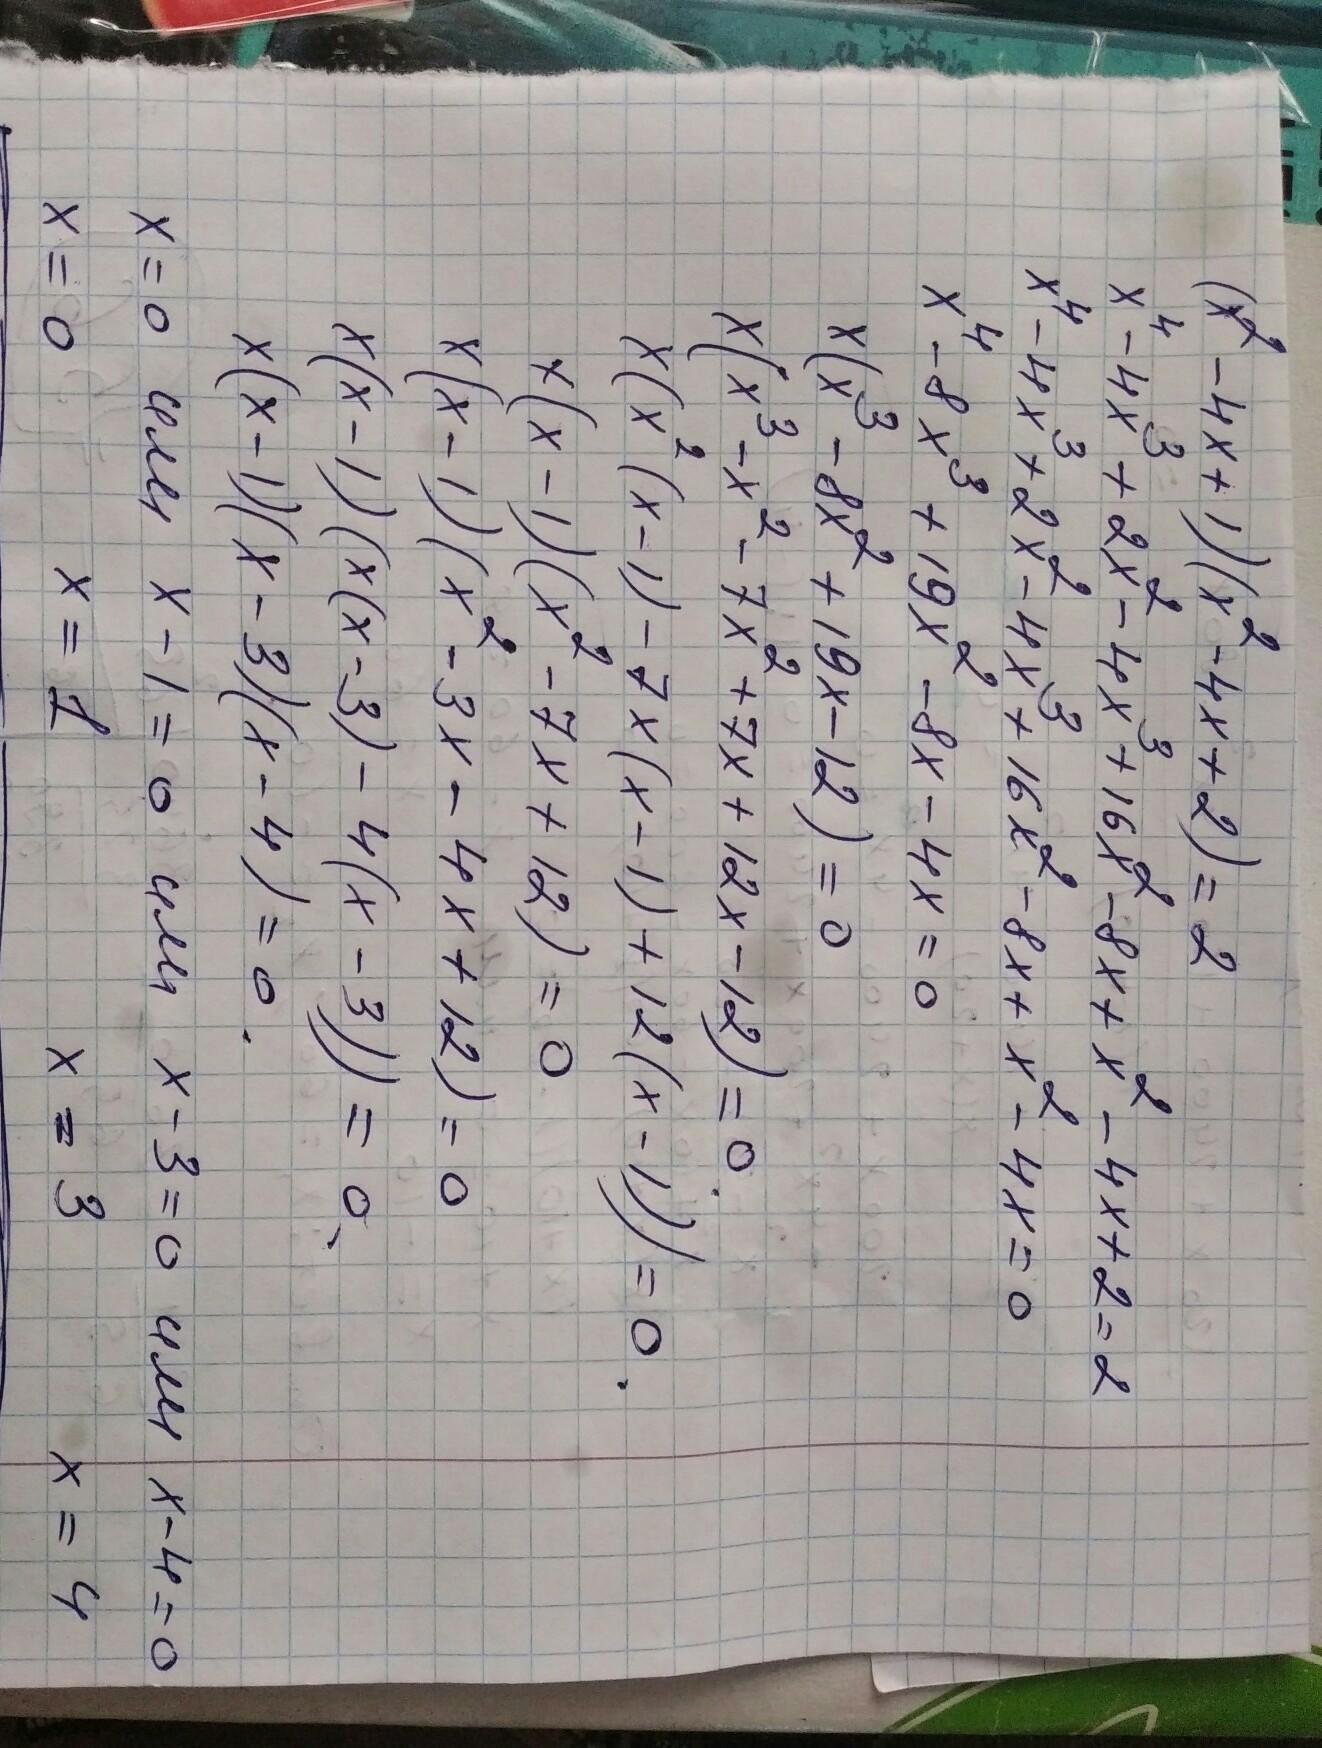 (x² - 4x + 1)(x² - 4x + 2) = 2
x⁴ - 4x³ + 2x² - 4x³ + 16x² - 8x + x² - 4x + 2 = 2
x⁴ - 4x³ + 2x² - 4x³ + 16x² - 8x + x² - 4x = 0
x⁴ - 8x³ + 19x² - 8x - 4x = 0
x(x³ - 8x² + 19x - 12) = 0
x(x³ - x² - 7x² + 7x + 12x - 12) = 0.
x(x²(x - 1) - 7x(x - 1) + 12(x - 1)) = 0.
x(x - 1)(x² - 7x + 12) = 0
x(x - 1)(x² - 3x - 4x + 12) = 0
x(x - 1)(x(x - 3) - 4(x - 3)) = 0.
x(x - 1)(x - 3)(x - 4) = 0.
x = 0 или x - 1 = 0 или x - 3 = 0 или x - 4 = 0
x = 0 x = 1 x = 3 x = 4